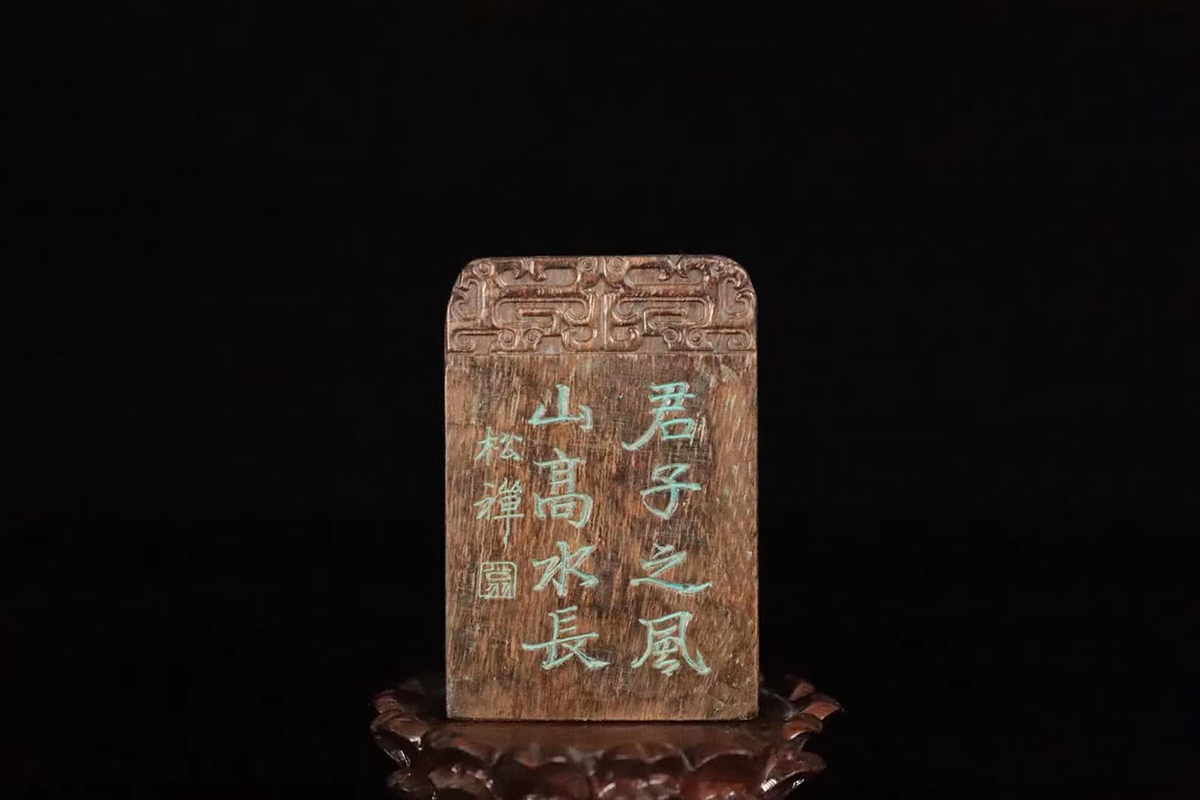 君子之風
山高水長
松禪
翁